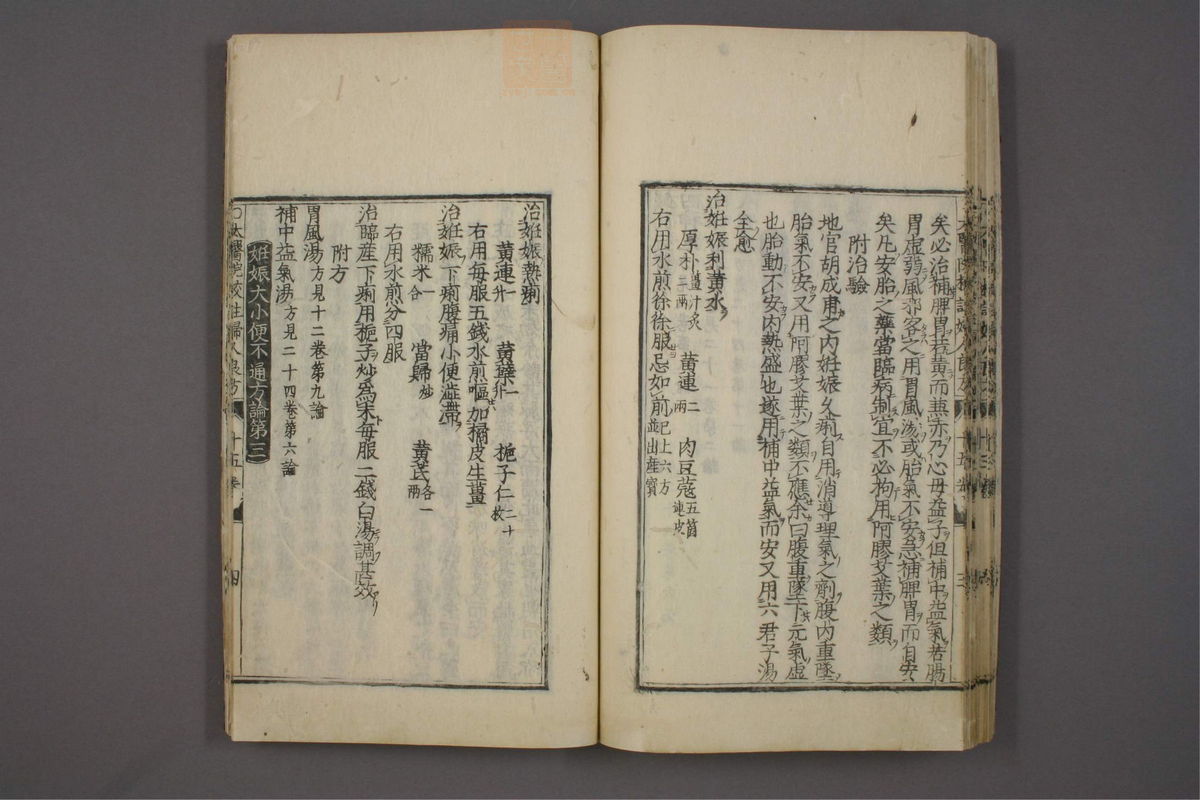 矣必治補脾胃若黄而兼赤乃心母益子但補中益氣若腸
胃虚弱風邪客之用胃風湯或胎氣不安急補脾胃而自安
矣凡安胎之藥當臨病制宜不必拘用阿膠艾葉之類
附治驗
地官胡成甫之内妊娠久痢自用消導理氣之劑腹内重墜
胎氣不安又用阿膠艾葉之類不應余曰腹重墜下元氣虚
也胎動不安内熱盛也遂用補中益氣而安又用六君子湯
全愈
治妊娠利黄水
厚朴薑汁炙二兩 黄連二兩 肉豆蔻五箇連皮
右用水煎徐徐服忌如前已上六方並出産寶
治妊娠熱痢
黄連一升 黄蘗一升 梔子仁二十枚
右用每服五錢水煎嘔加橘皮生薑
治妊娠下痢腹痛小便澁滯
糯米一合 當歸炒 黄芪各一兩
右用水煎分四服
治臨産下痢用梔子炒爲末每服二錢白湯調甚效
附方
胃風湯方見十二卷第九論
補中益氣湯方見二十四卷第六論
妊娠大小便不通方論第三
太醫院校註婦人良方 十五卷 四